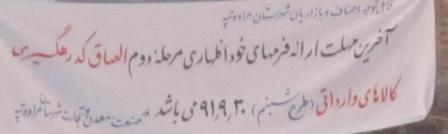 قابل توجه اصناف و بازاریان شهرستان مراوه تپه
آخرین مهلت ارائه فرمهای خود اظهاری مرحله دوم الصاق کد رهگیری
کالاهای وارداتی (طرح شبنم) ۹۱,۹,۳۰ می باشد صنعت معدن و تجارت شهرستان مراوه تپه